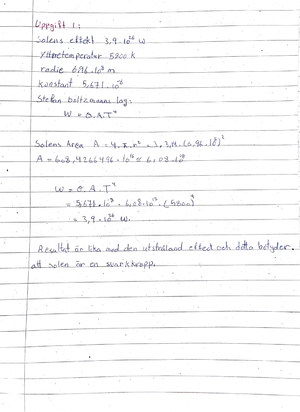 Uppgift 1:
Solens effekt 3,9·10²⁶ W
Yttretemperatur 5800 K
radie 6,96·10⁸ m
konstant 5,671·10⁻⁸
Stefan boltzmanns lag:
W = σ.A.T⁴
Solens Area A = 4.π.r² =
A = 608,4266496·10¹⁶ ≈ 6,08·10¹⁸
W = σ.A.T⁴
= 5,671·10⁻⁸ · 6,08·10¹⁸ · (5800)⁴
= 3,9·10²⁶ W.
Resultat är lika med den utstråland effect och ditto betyder.
att solen är en svartkropp.